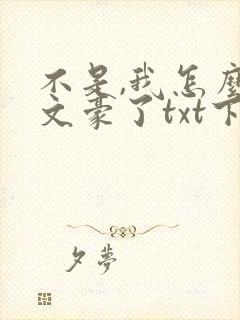 不是,我怎麼
文豪了txt下
夕夢